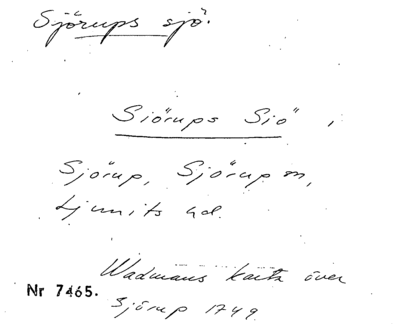 Sjörups sjö.
Siörups Siö",
Sjörup, Sjörup sn,
Ljunits hd.
Wadmans karta över
Nr 7465.
Sjörup 1749